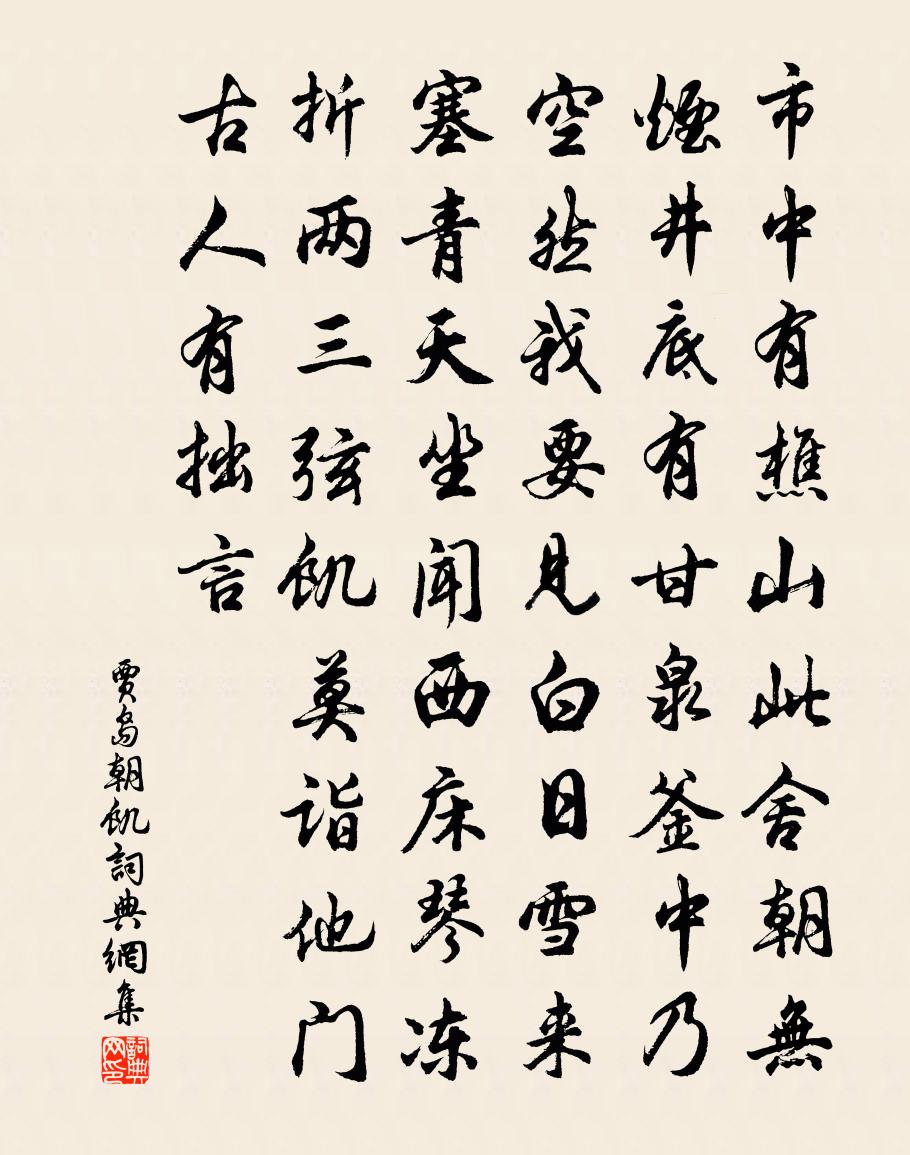 市中有樵山此舍朝無
煙井底有甘泉釜中乃
空然我要見白日雪来
塞青天坐聞西床琴冻
折两三弦飢莫詣他门
古人有拙言
賈岛朝飢詞典網集
詞典网印